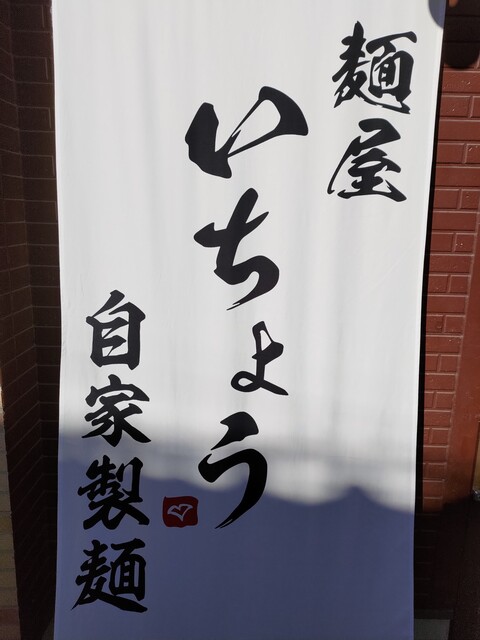 麺屋
いちょう
自家製麺